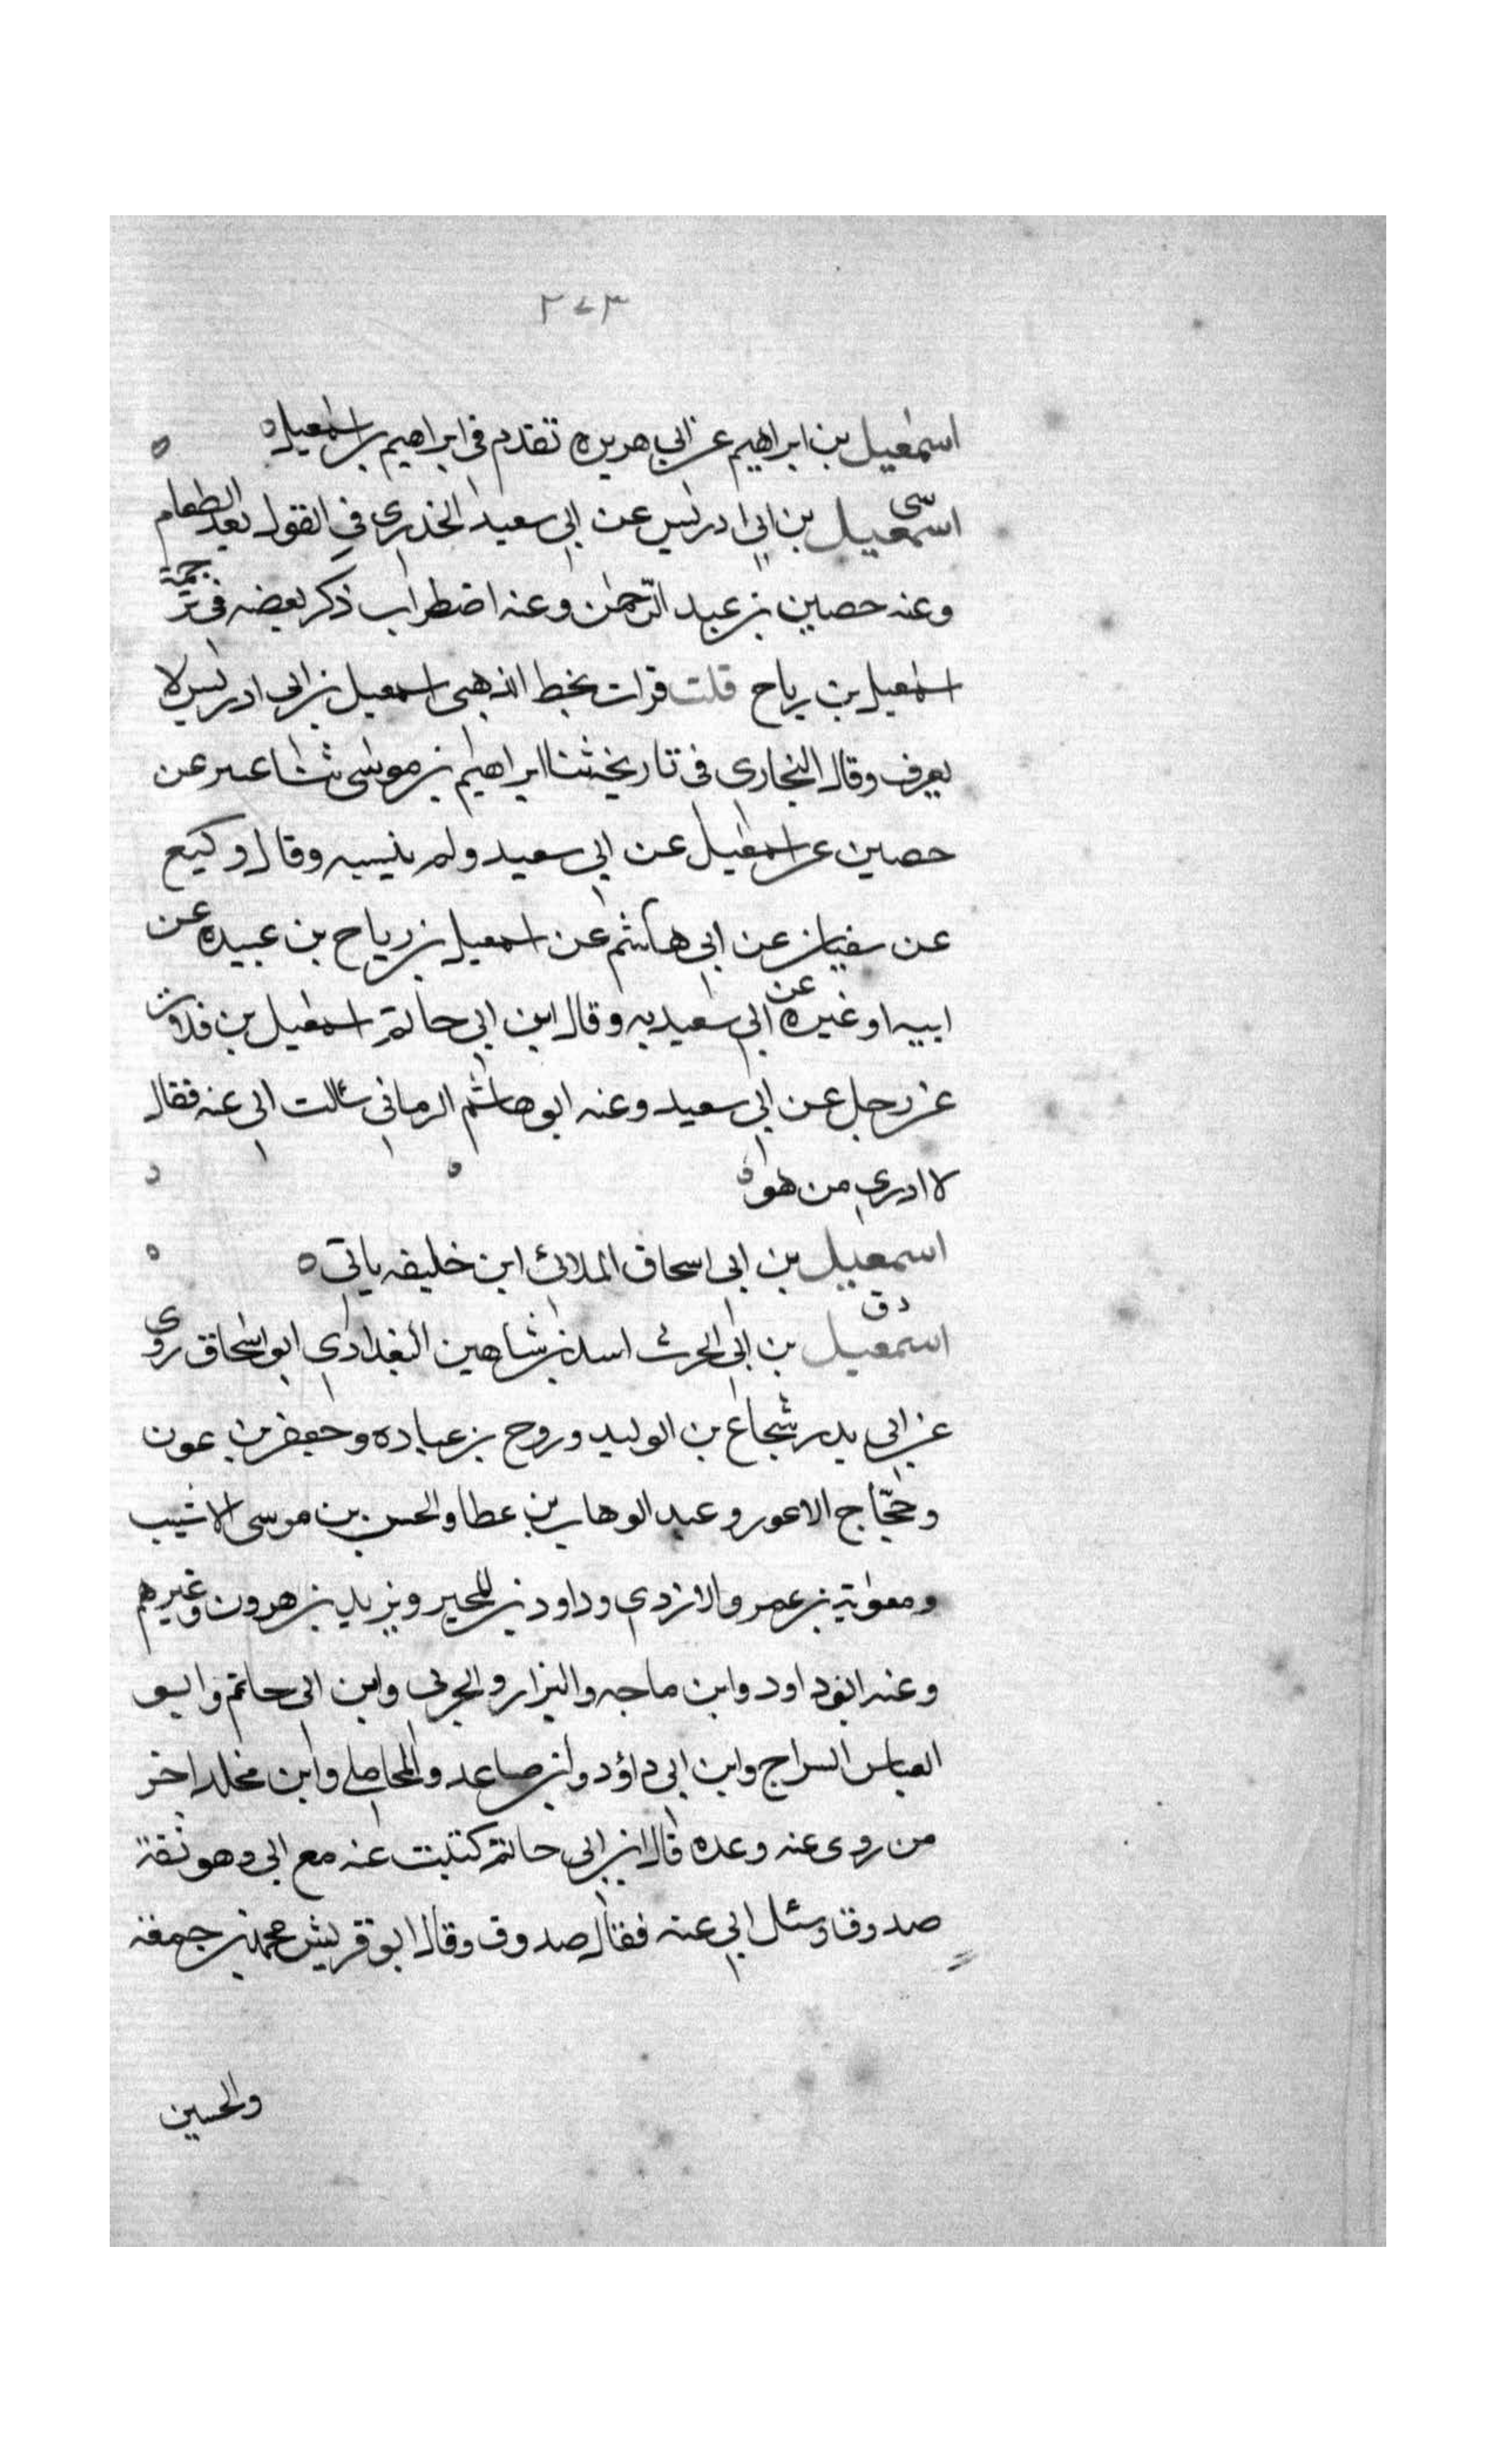 ٢٧٣
اسمعيل بن ابراهيم عن ابي هريره تقدم في ابراهيم بن اسمعيل ه
سي
اسمعيل بن ابي ادريس عن ابي سعيد الخدري في القول بعد الطعام
وعنه حصين بن عبد الرحمن وعنه اضطراب ذكر بعضه في ترجمة
اسمعيل بن رياح قلت قرات بخط الذهبي اسمعيل بن ابي ادريس لا
يعرف وقال البخاري في تاريخه ثنا ابراهيم بن موسى ثنا عبر عن
حصين عن اسمعيل عن ابي سعيد ولم ينسبه وقال وكيع
عن سفيان عن ابي هاشم عن اسمعيل بن رياح بن عبيده عن
ابيه او غيره عن ابي سعيد به وقال ابن ابي حاتم اسمعيل بن
عن رجل عن ابي سعيد وعنه ابو هاشم الرماني سالت ابي عنه فقال
لا ادري من هو ه
اسمعيل بن ابي اسحاق الملائي ابن خليفه ياتي ه
د ق
اسمعيل بن ابي الحرث اسد بن شاهين البغدادي ابو اسحاق روى
عن ابي بدر شجاع بن الوليد وروح بن عباده وجعفر بن عون
وحجّاج الاعور وعبد الوهاب بن عطا والحسن بن موسى الاشيب
ومعوية بن عمرو الازدي وداود بن المحبر ويزيد بن هرون وغيرهم
وعنه ابو داود وابن ماجه والبزار والحربي وابن ابي حاتم وابو
العباس السراج وابن ابي داؤد وابن صاعد والمحاملي وابن مخلد اخر
من روى عنه وعده قال ابن ابي حاتم كتبت عنه مع ابي وهو ثقة
صدوق وسئل ابي عنه فقال صدوق وقال ابو قريش محمد بن جمعة
والحسين